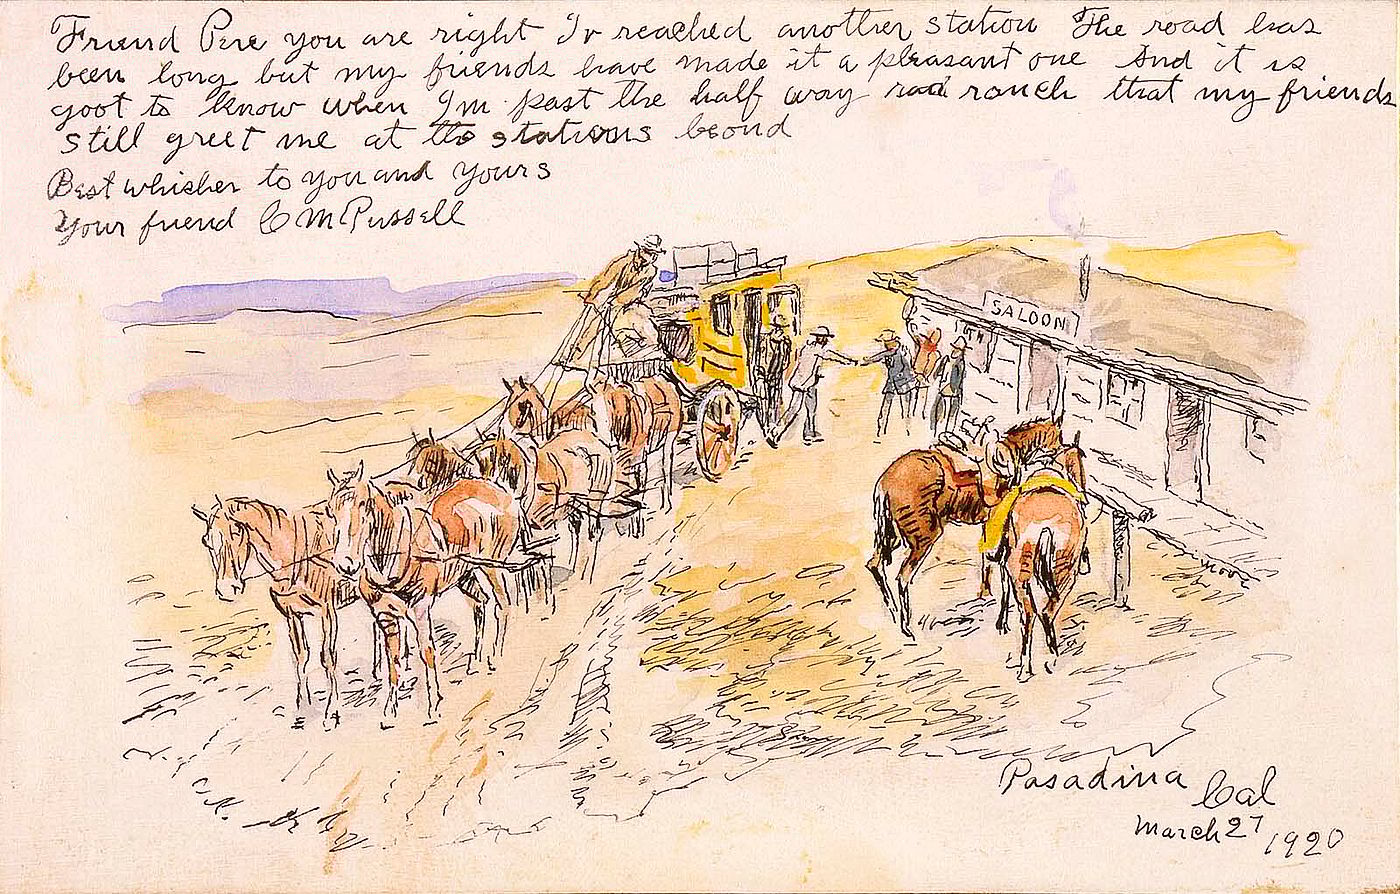 Friend Pere you are right Iv reached another station The road has
been long but my friends have made it a pleasant one And it is
goot to know when I'm past the half way ranch that my friends
still greet me at the stations beond
Best whishes to you and yours
Your friend C M Russell
SALOON
Pasadina Cal
March 27 1920